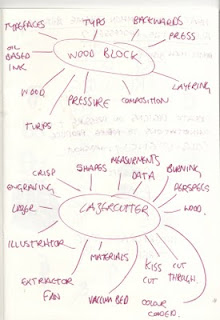 TYPEFACES
TYPO
BACKWARDS
PRESS
OIL
BASED
INK
WOOD BLOCK
LAYERING
WOOD
PRESSURE
COMPOSITION
TURPS
CRISP
SHAPES
MEASUREMENTS
DATA
BURNING
ENGRAVING
PERSPECS
LASER
LAZERCUTTER
WOOD.
ILLUSTRATOR
MATERIALS
KISS
CUT
CUT
THROUGH.
EXTRACTOR
FAN
VACUUM BED
COLOUR
CODED.